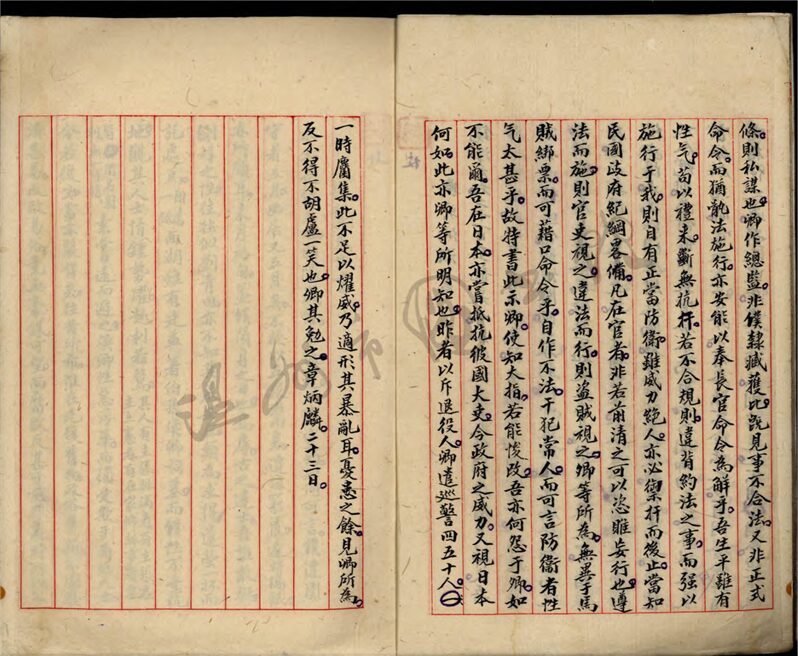 條則私謀也卿作總監非僕隸臧獲比既見事不合法又非正式
命令而猶骫法施行亦安能以奉長官命令為解乎吾生平雖有
性气苟以禮來斷無抗扞若不合規則違背約法之事而强以
施行于我則自有正當防衛雖威力絕人亦必禦扞而後止當知
民國政府紀綱畧備凡在官者非若前清之可以恣睢妄行也遵
法而施則官吏視之違法而行則盜賊視之卿等所為無異于馬
賊綁票而可藉口命令乎自作不法干犯常人而可言防衛者性
气太甚乎故特書此示卿使知大指若能悛改吾亦何怨于卿如
不能爾吾在日本亦嘗抵抗彼國大吏今政府之威力又視日本
何如此亦卿等所明知也昨者以斥退役人卿遣巡警四五十人
一時麕集此不足以燿威乃適形其暴亂耳憂恚之餘見卿所為
反不得不胡盧一笑也卿其勉之章炳麟二十三日
溫州市圖